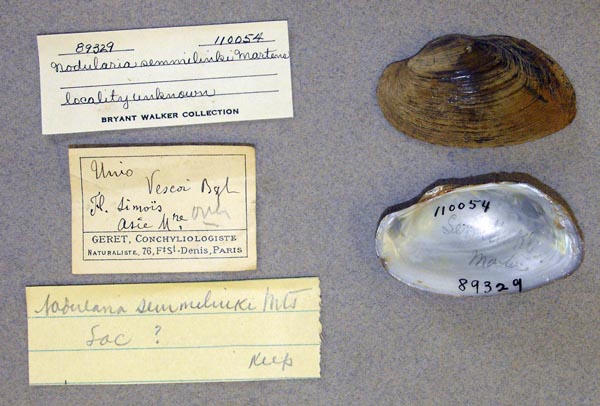 89329 110054
Nodularia semmelinki Martens
locality unknown
BRYANT WALKER COLLECTION
Unio
Vescoi Bgt
Fl. Simoïs
Asie Mre
GERET, CONCHYLIOLOGISTE
NATURALISTE, 76, Fg St-DENIS, PARIS
Nodularia semmelinki Mts
Loc ?
Keep
110054
89329